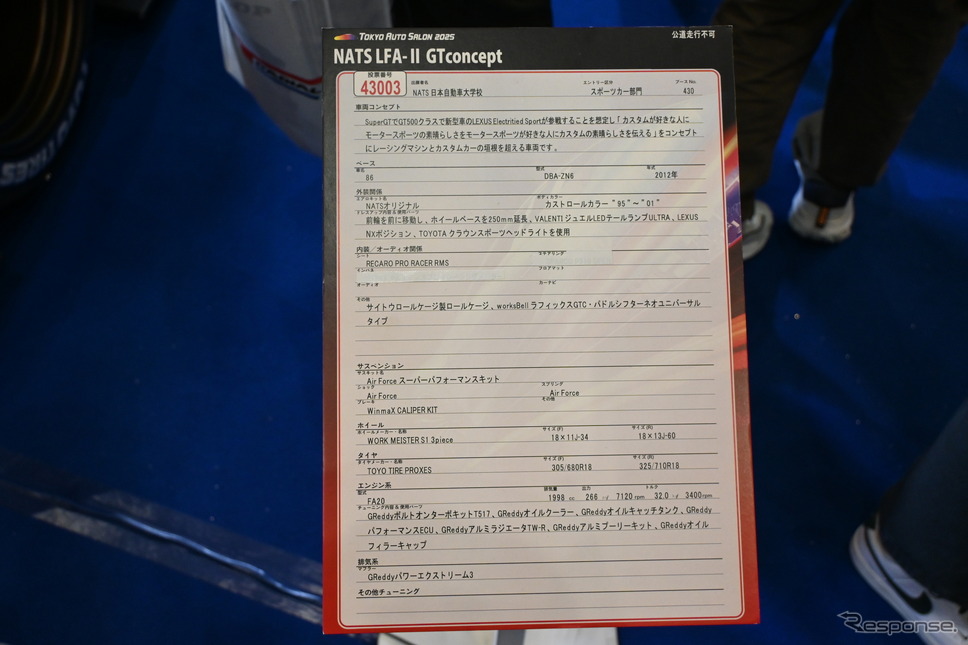 TOKYO AUTO SALON 2025
公道走行不可
NATS LFA-II GTconcept
投票番号
43003
出展者名
NATS 日本自動車大学校
エントリー区分
スポーツカー部門
ブースNo.
430
車両コンセプト
SuperGTでGT500クラスで新型車のLEXUS Electritied Sportが参戦することを想定し「カスタムが好きな人に
モータースポーツの素晴らしさをモータースポーツが好きな人にカスタムの素晴らしさを伝える」をコンセプト
にレーシングマシンとカスタムカーの垣根を超える車両です。
ベース
車名
86
型式
DBA-ZN6
年式
2012年
外装関係
エアロキット名
NATSオリジナル
ボディカラー
カストロールカラー "95"~"01"
ドレスアップ内容&使用パーツ
前輪を前に移動し、ホイールベースを250mm延長、VALENTI ジュエルLEDテールランプULTRA、LEXUS
NXポジション、TOYOTA クラウンスポーツヘッドライトを使用
内装／オーディオ関係
シート
RECARO PRO RACER RMS
ステアリング
インパネ
フロアマット
オーディオ
カーナビ
その他
サイトウロールケージ製ロールケージ、worksBell ラフィックスGTC・パドルシフターネオユニバーサル
タイプ
サスペンション
サスキット名
Air Force スーパーパフォーマンスキット
ショック
Air Force
スプリング
Air Force
ブレーキ
WinmaX CALIPER KIT
その他
ホイール
ホイールメーカー・名称
WORK MEISTER S1 3piece
サイズ(F)
18×11J-34
サイズ(R)
18×13J-60
タイヤ
タイヤメーカー・名称
TOYO TIRE PROXES
サイズ(F)
305/680R18
サイズ(R)
325/710R18
エンジン系
型式
FA20
排気量
1998 cc
出力
266 7120 rpm
トルク
32.0 3400rpm
チューニング内容&使用パーツ
GReddyボルトオンターボキットT517、GReddyオイルクーラー、GReddyオイルキャッチタンク、GReddy
パフォーマンスECU、GReddyアルミラジエータTW-R、GReddyアルミプーリーキット、GReddyオイル
フィラーキャップ
排気系
マフラー
GReddyパワーエクストリーム3
その他チューニング
Response.